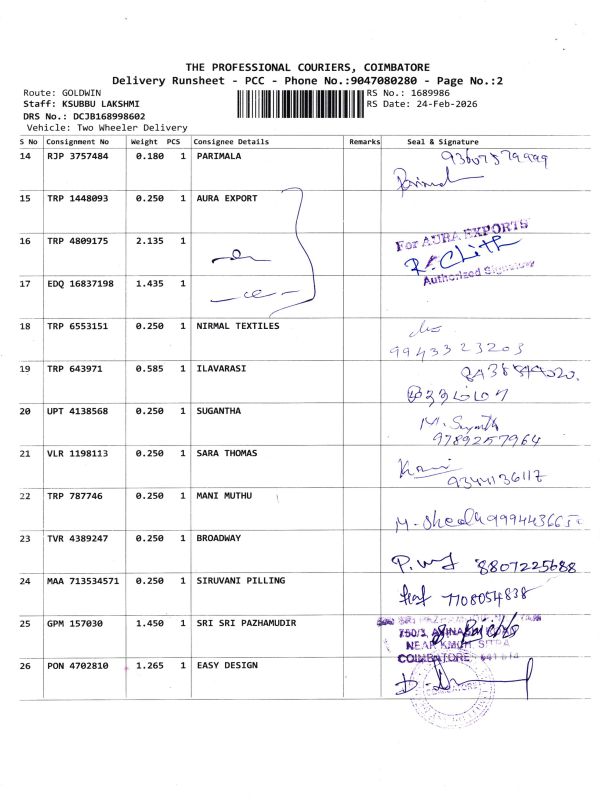 THE PROFESSIONAL COURIERS, COIMBATORE
Delivery Runsheet - PCC - Phone No.:9047080280 - Page No.:2
Route: GOLDWIN
RS No.: 1689986
Staff: KSUBBU LAKSHMI
RS Date: 24-Feb-2026
DRS No.: DCJB168998602
Vehicle: Two Wheeler Delivery
S No Consignment No Weight PCS Consignee Details Remarks Seal & Signature
14 RJP 3757484 0.180 1 PARIMALA
15 TRP 1448093 0.250 1 AURA EXPORT
16 TRP 4809175 2.135 1 For AURA EXPORTS
Authorized Signatory
17 EDQ 16837198 1.435 1
18 TRP 6553151 0.250 1 NIRMAL TEXTILES
9943323203
19 TRP 643971 0.585 1 ILAVARASI
20 UPT 4138568 0.250 1 SUGANTHA
9789257964
21 VLR 1198113 0.250 1 SARA THOMAS
9344136117
22 TRP 787746 0.250 1 MANI MUTHU
23 TVR 4389247 0.250 1 BROADWAY
8807225688
24 MAA 713534571 0.250 1 SIRUVANI PILLING
7708054838
25 GPM 157030 1.450 1 SRI SRI PAZHAMUDIR
NEAR KMCH
COIMBATORE
26 PON 4702810 1.265 1 EASY DESIGN